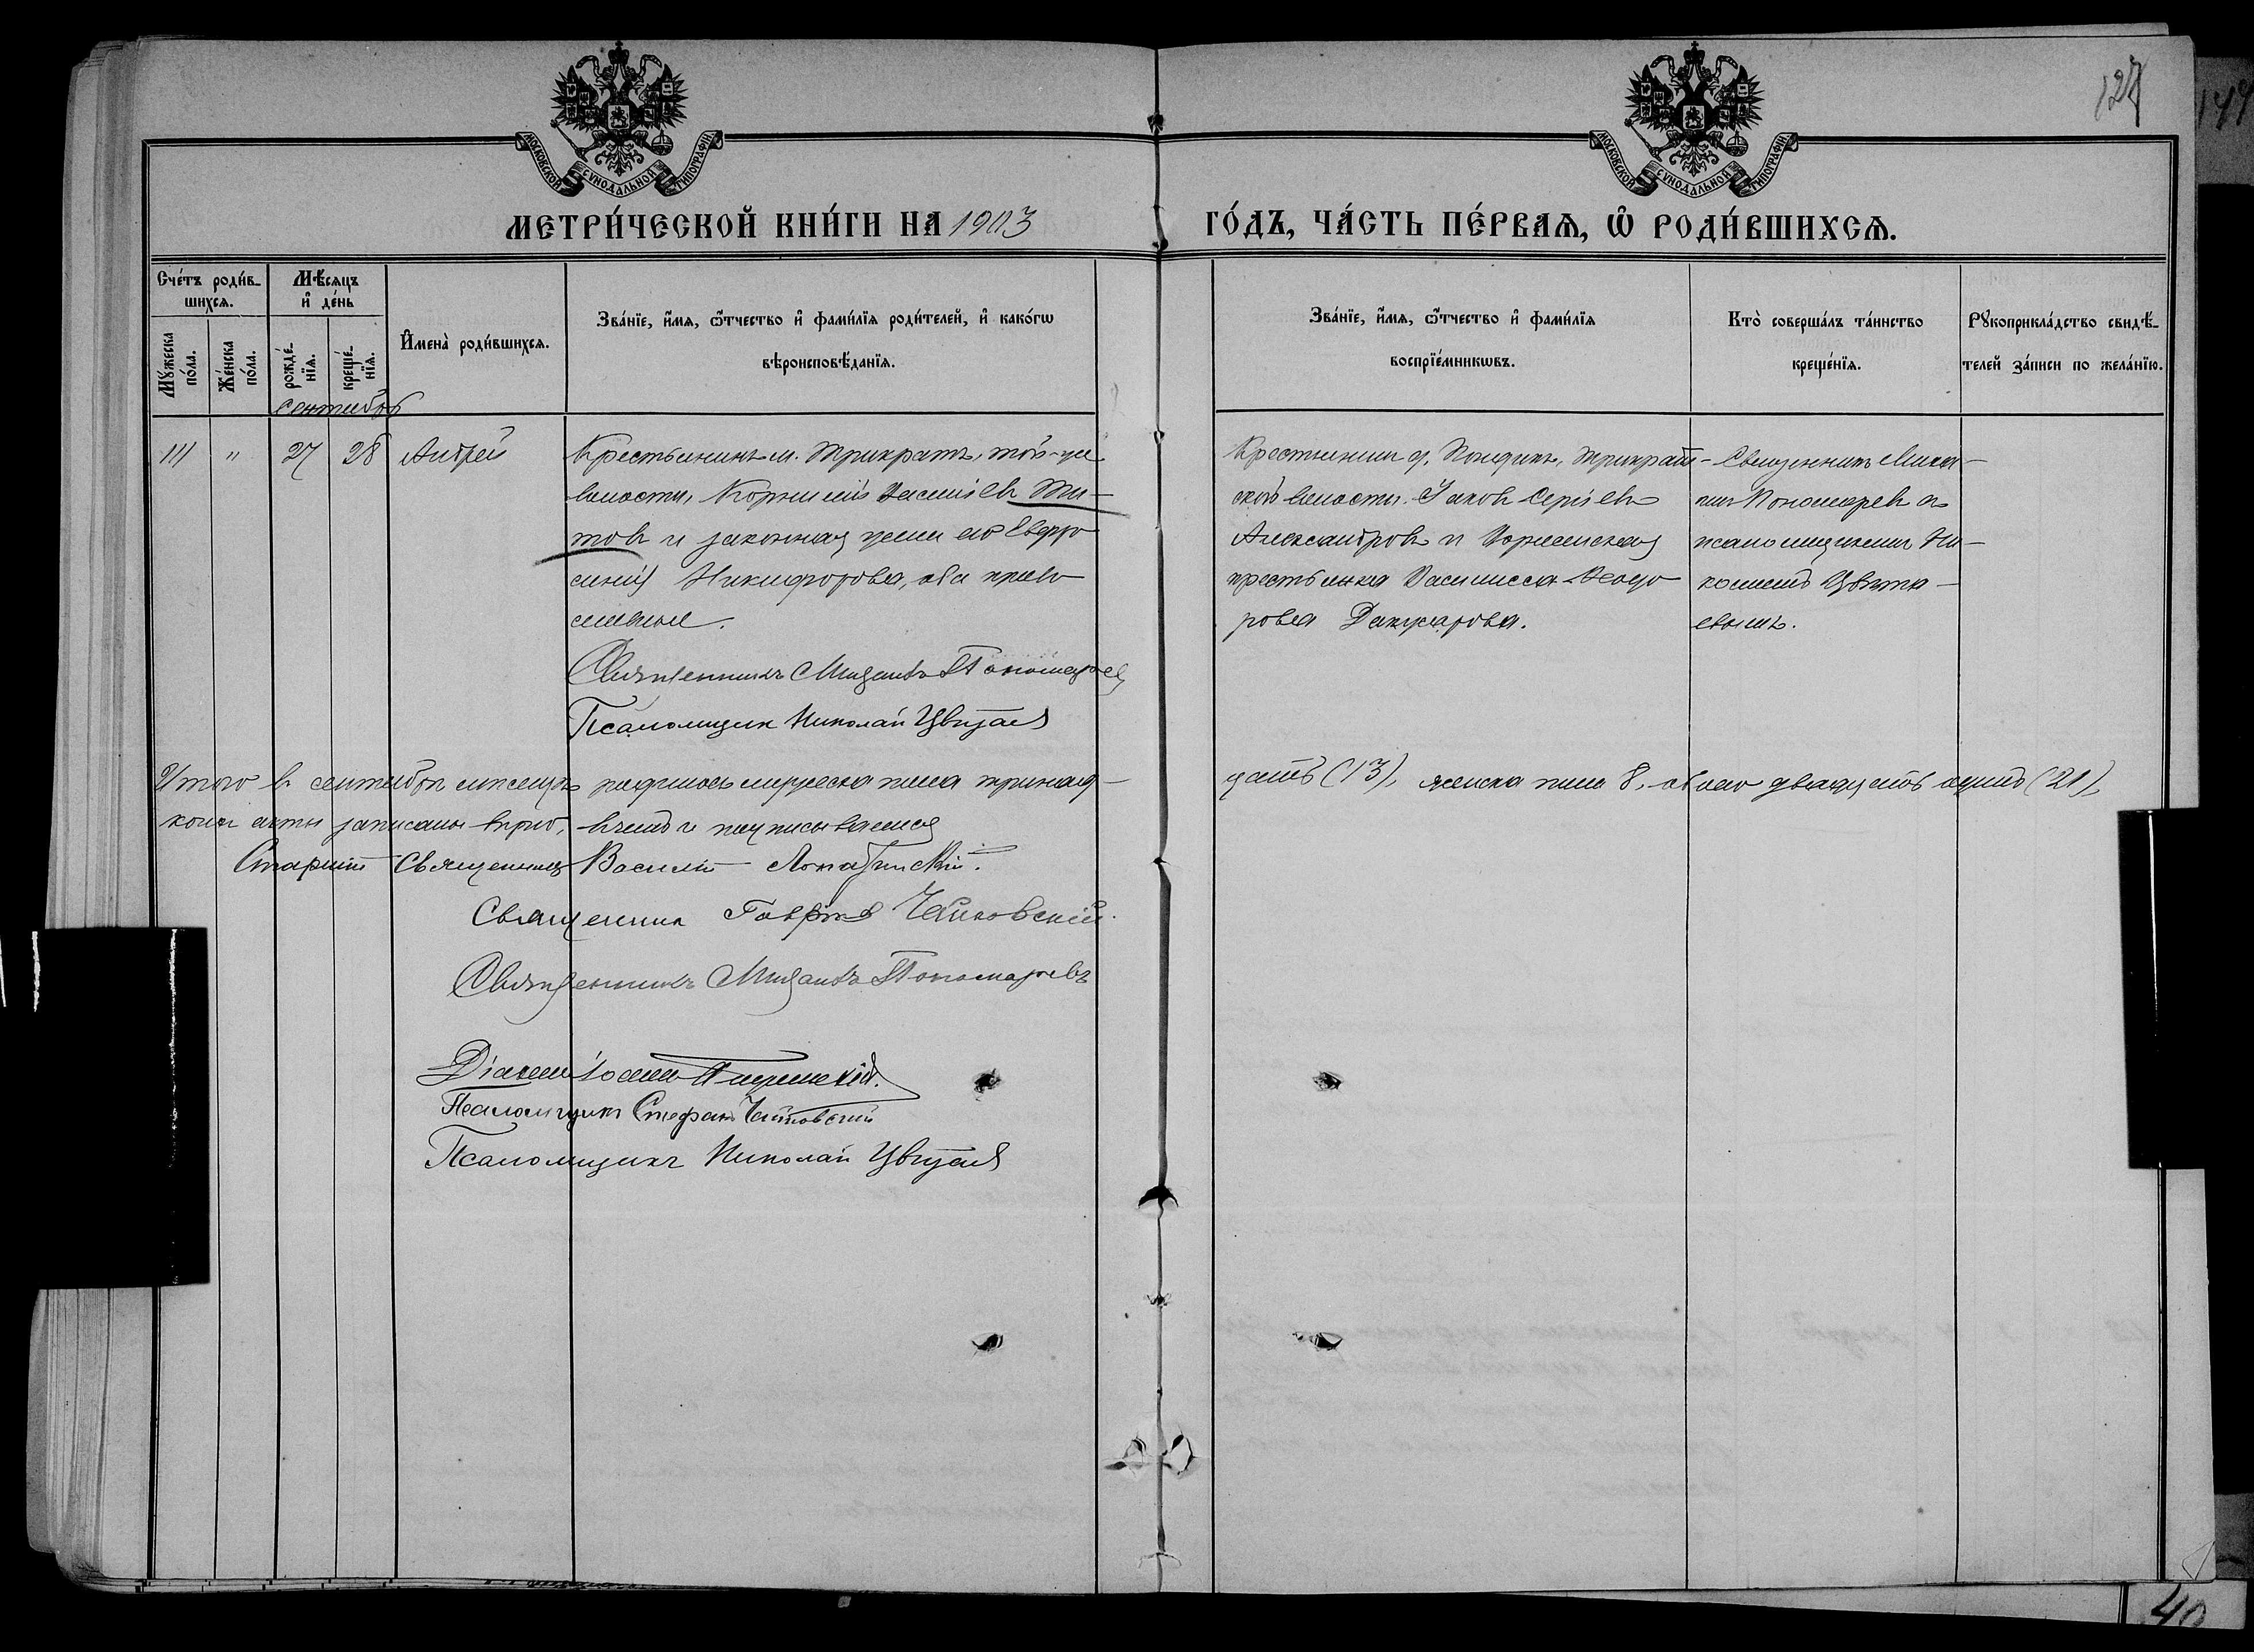 МОСКОВСКОЙ СѴНОДАЛЬНОЙ ТИПОГРАФІИ
МОСКОВСКОЙ СѴНОДАЛЬНОЙ ТИПОГРАФІИ
127
МЕТРИ́ЧЕСКОЙ КНИ́ГИ НА 1903
ГО́ДЪ, ЧА́СТЬ ПЕ́РВАѦ, Ѡ҆ РОДИ́ВШИХСѦ.
Сче́тъ роди́в-
шихсѧ.
Мꙋ́жеска по́ла.
Же́нска по́ла.
Мѣ́сѧцъ
и҆ де́нь
рожде́-
нїѧ.
креще́-
нїѧ.
И҆мена̀ роди́вшихсѧ.
Зва́нїе, и҆́мѧ, ѻ҆́тчество и҆ фами́лїѧ роди́телей, и҆ како́гѡ
вѣроисповѣ́данїѧ.
Зва́нїе, и҆́мѧ, ѻ҆́тчество и҆ фами́лїѧ
воспрїе́мникѡвъ.
Кто̀ соверша́лъ та́инство
креще́нїѧ.
Рꙋкоприкла́дство свидѣ́-
телей за́писи по жела́нїю.
Сентябрь
111 " 27 28 Андрей
Крестьянинъ м. Трикратъ, той-же
волости, Корнилій Василіевъ Ти-
товъ и законная жена его Евфро
синія Никифорова, оба право
славные.
Священникъ Михаилъ Пономаревъ
Псаломщикъ Николай Цвѣтаевъ
Крестьянинъ д. Трикрат-
ской волости Іаковъ Сергіевъ
Александровъ и
крестьянка Василисса Ѳеодо
рова
Священникъ Миха-
илъ Пономаревъ съ
псаломщикомъ Ни-
колаемъ Цвѣта-
евымъ.
Итого въ сентябрѣ мѣсяцѣ родилось мужеска пола тринад-
цать (13), женска пола 8, обоего двадцать одинъ (21),
коихъ акты записаны вѣрно, въ чемъ и подписываемся
Старшій Священникъ Василій
Священникъ Чайковскій.
Священникъ Михаилъ Пономаревъ
Діаконъ Іоаннъ
Псаломщикъ Стефанъ
Псаломщикъ Николай Цвѣтаевъ
40